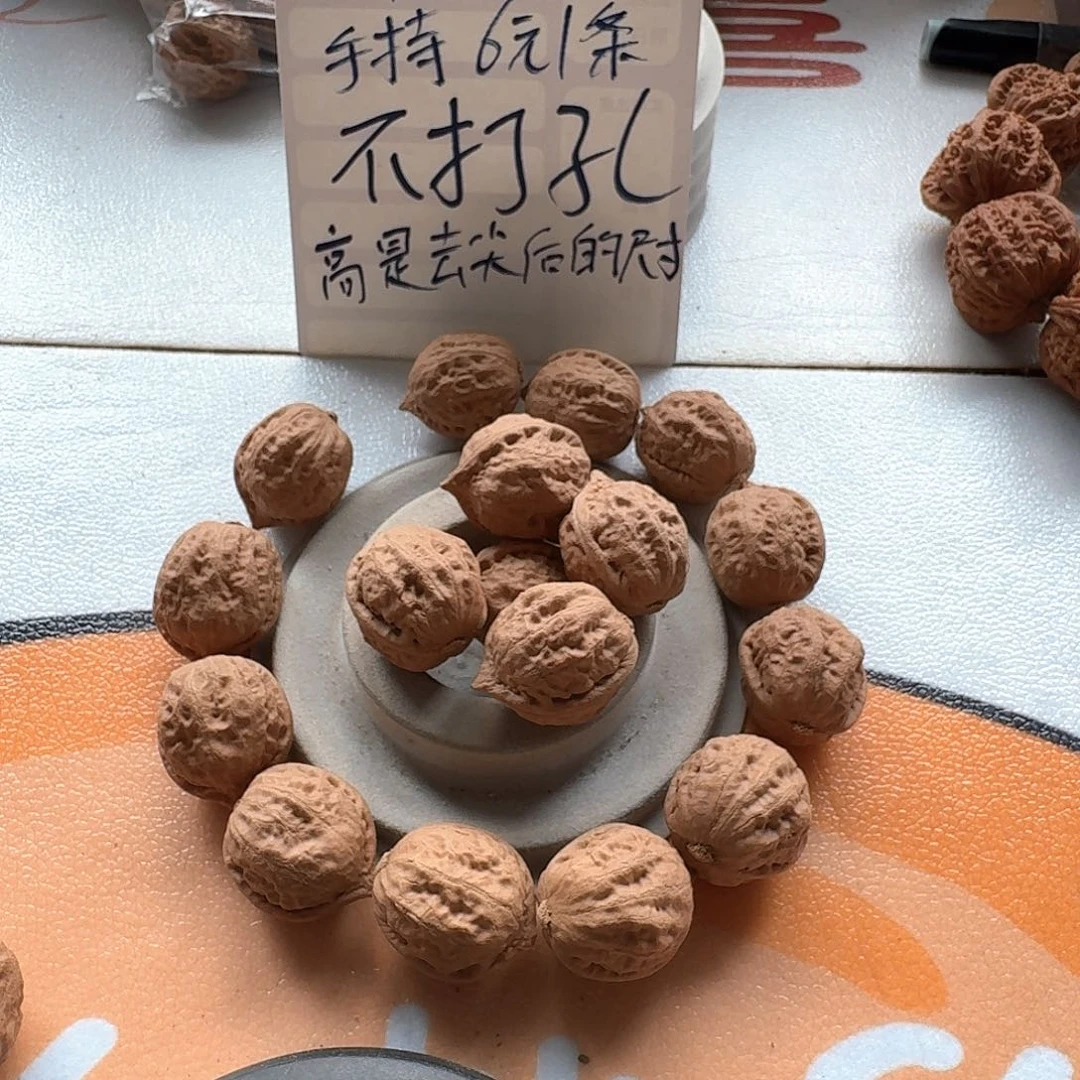 手持 6元1条
不打孔
高是去尖后的尺寸